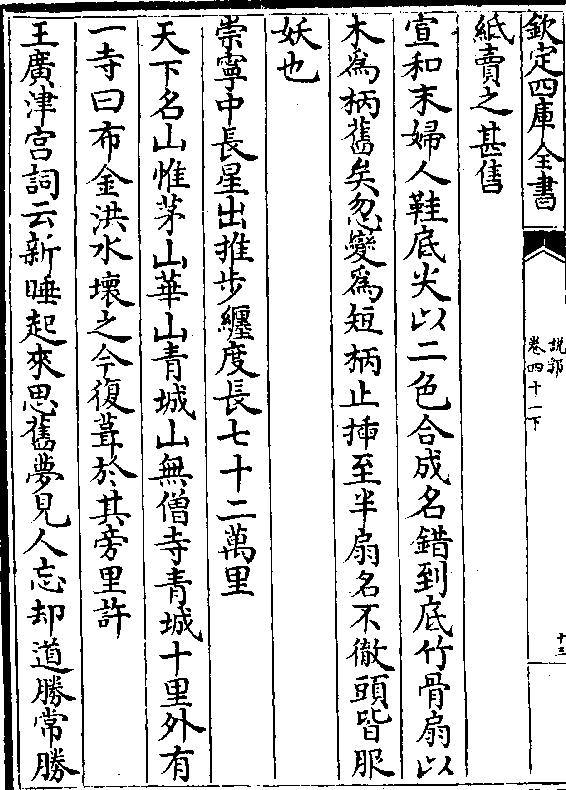 欽定四庫全書
說郛
卷四十一下
十三
紙賣之甚售
宣和末婦人鞋底尖以二色合成名錯到底竹骨扇以
木為柄舊矣忽變為短柄止揷至半扇名不徹頭皆服
妖也
崇寧中長星出推步纏度長七十二萬里
天下名山惟茅山華山青城山無僧寺青城十里外有
一寺曰布金洪水壞之今復葺於其旁里許
王廣津宮詞云新睡起來思舊夢見人忘却道勝常勝